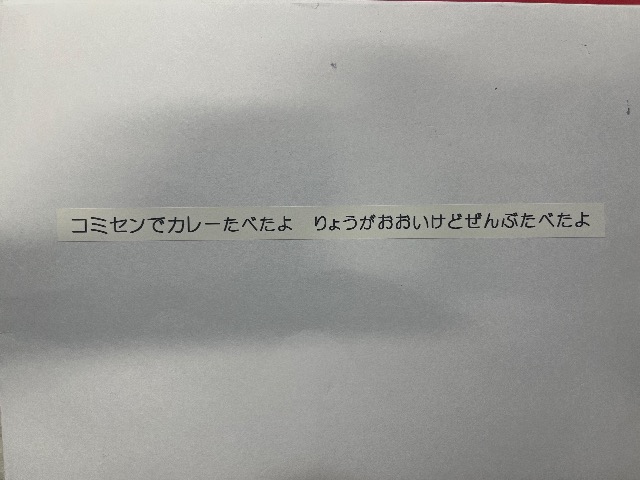 コミセンでカレーたべたよ　りょうがおおいけどぜんぶたべたよ